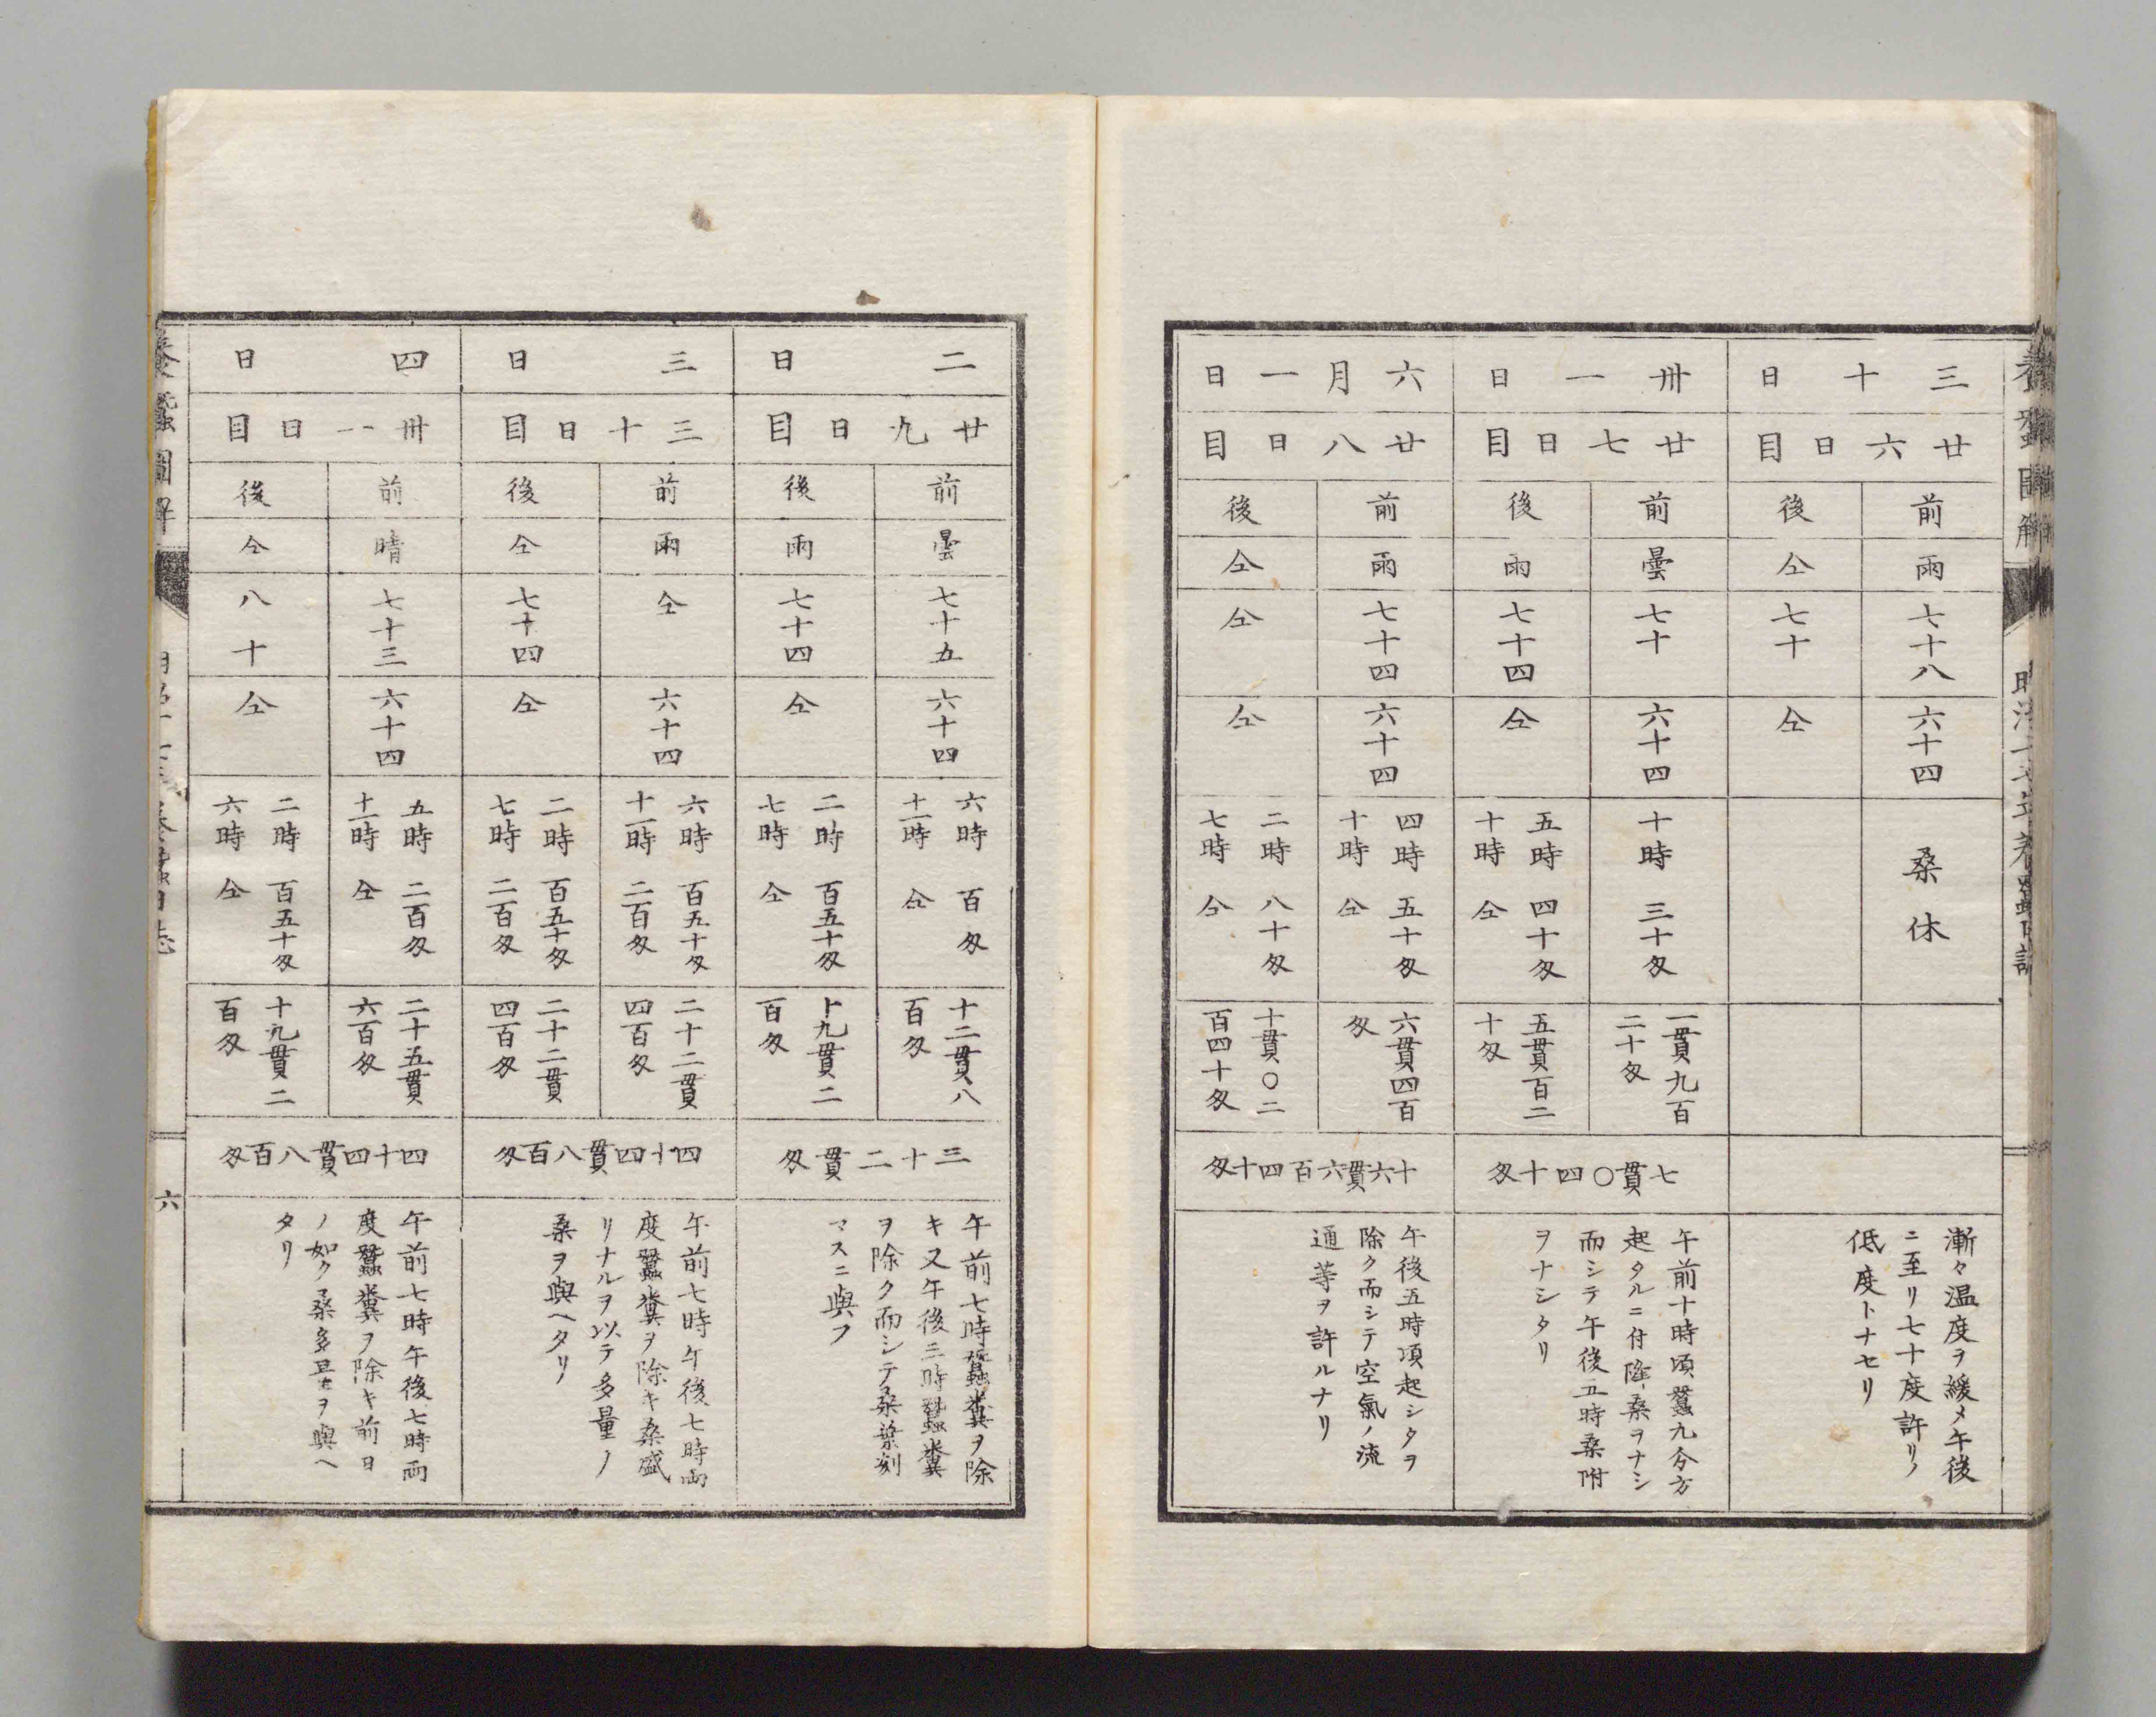 三十日
廿六日目
前
後
雨
仝
七十八
七十
六十四
仝
桑休
漸々温度ヲ緩メ午後
ニ至リ七十度許リノ
低度トナセリ
卅一日
廿七日目
前
後
曇
雨
七十
七十四
六十四
仝
十時 三十匁
五時 四十匁
十時 仝
一貫九百
二十匁
五貫百二
十匁
七貫〇四十匁
午前十時頃蠶九分方
起タルニ付桑ヲナシ
而シテ午後五時桑附
ヲナシタリ
六月一日
廿八日目
前
後
雨
仝
七十四
仝
六十四
仝
四時 五十匁
十時 仝
二時 八十匁
七時 仝
六貫四百
匁
十貫〇二
百四十匁
十六貫六百四十匁
午後五時項起シタヲ
除ク而シテ空氣ノ流
通等ヲ許ルナリ
二日
廿九日目
前
後
曇
雨
七十五
七十四
六十四
仝
六時 百匁
十一時 仝
二時 百五十匁
七時 仝
十二貫八
百匁
十九貫二
百匁
三十二貫匁
午前七時蠶糞ヲ除
キ又午後三時蠶糞
ヲ除ク而シテ桑葉刻
マスニ與フ
三日
三十日目
前
後
雨
仝
仝
七十四
六十四
仝
六時 百五十匁
十一時 二百匁
二時 百五十匁
七時 二百匁
二十二貫
四百匁
二十二貫
四百匁
四十四貫八百匁
午前七時午後七時両
度蠶糞ヲ除キ桑盛
リナルヲ以テ多量ノ
桑ヲ與ヘタリ
四日
卅一日目
前
後
晴
仝
七十三
八十
六十四
仝
五時 二百匁
十一時 仝
二時 百五十匁
六時 仝
二十五貫
六百匁
十九貫二
百匁
四十四貫八百匁
午前七時午後七時両
度蠶糞ヲ除キ前日
ノ如ク桑多量ヲ與ヘ
タリ
六